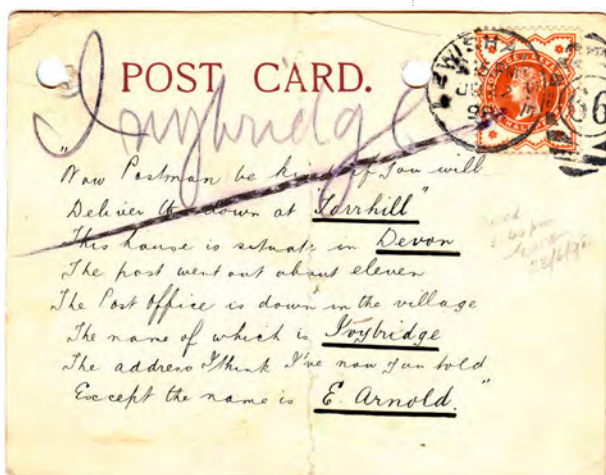 POST CARD.
Ivybridge
LEWISHA
66
"Now Postman be kind if you will
Deliver this down at "Torrhill"
This house is situate in Devon
The post went out about eleven
The Post Office is down in the village
The name of which is Ivybridge
The address I think I've now you told
Except the name is E. Arnold."